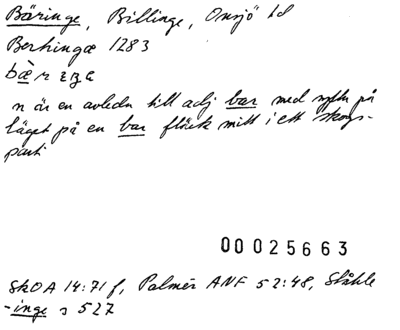 Bäringe, Billinge, Onsjö hd
Berhingæ 1283
bæ̀rıŋe
n är en avledn till adj bar med syftn på
läget på en bar fläck mitt i ett skogs-
parti
00025663
SkOA 14:71 f, Palmér ANF 52:48, Ståhle
-inge s 527